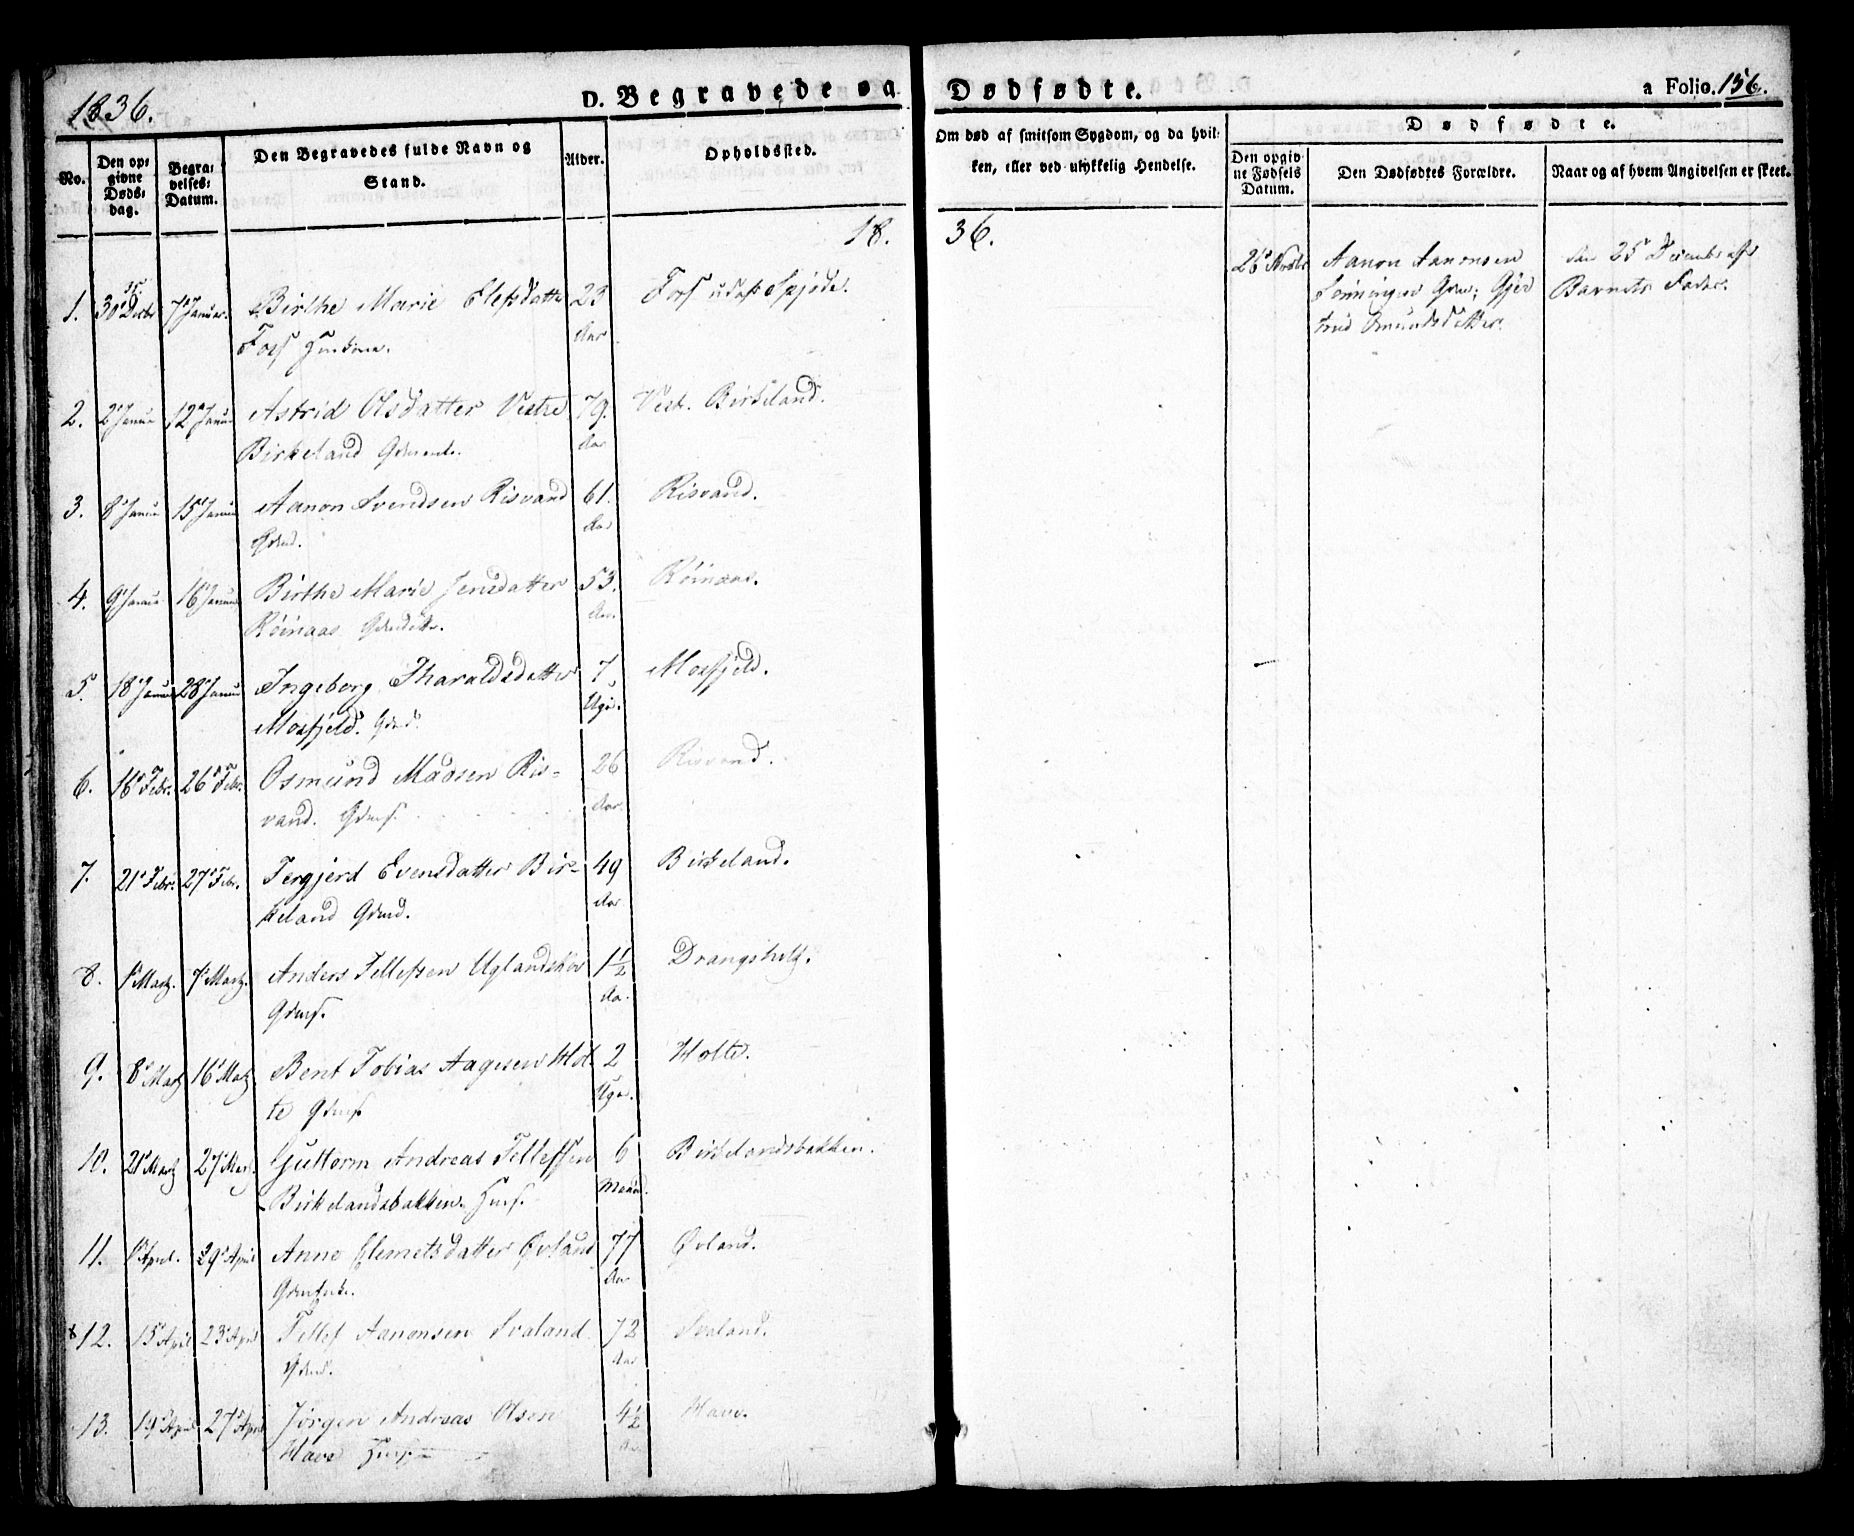 1836.
D. Begravede og
No.
Den op=
givne
Døds=
dag.
Begra=
velses=
Datum.
Den Begravedes fulde Navn og
Stand.
Alder.
Opholdssted.
18.
1. 30 Decbr 7 Januar. Birthe Marie Elefsdatter 23 Foss
Foss Aar
2. 2 Januar 12 Januar Astrid Olsdatter Vestre 79. Vest. Birkeland.
Birkeland Aar
3. 8 Januar 15 Januar Aanon Svendsen Risvand 61. Risvand.
Gdmd. Aar
4. 9 Januar 16 Januar Birthe Marie Jensdatter 53. Röinaas.
Röinaas Aar.
5. 18 Januar 28 Januar Ingeborg Tharaldsdatter 7 Mosfjeld.
Mosfjeld. Uger.
6. 16 Febr. 26 Febr. Osmund Madsen Ris= 26 Risvand.
vand. Gdms. Aar.
7. 21 Febr. 27 Febr. Tergjerd Evensdatter Bir= 49 Birkeland.
keland Aar
8. 1 Martz. 7 Martz. Anders Tellefsen Uglandskov 1½ Drangsholt.
Gdms. Aar.
9. 8 Martz 16 Martz Bent Tobias Aagesen Hol 2 Holte.
te Gdms Uger.
10. 21 Martz 27 Martz Guttorm Andreas Tellefsen 6 Birkelandsbakken.
Birkelandsbakken. Hms. Maan.
11. 1 April. 29 April Anne Clemetsdatter Øvland 77 Øvland.
Aar
12. 15 April 23 April Tellef Aanonsen Svaland 72 Svaland.
Gdmd. Aar
13. 19 April 27 April Jörgen Andreas Olsen 4½ Have.
Have Hms. Aar
Dødfødte.
a Folio. 156.
Om død af smitsom Sygdom, og da hvil=
ken, eller ved ulykkelig Hendelse.
Dødfødte.
Den opgiv=
ne Fødsels
Datum.
Den Dødfødtes Forældre.
Naar og af hvem Angivelsen er skeet.
36.
Aanon Aanonsen den 25 Decembr af
Gjer Barnets Fader.
trud Omundsdatter.